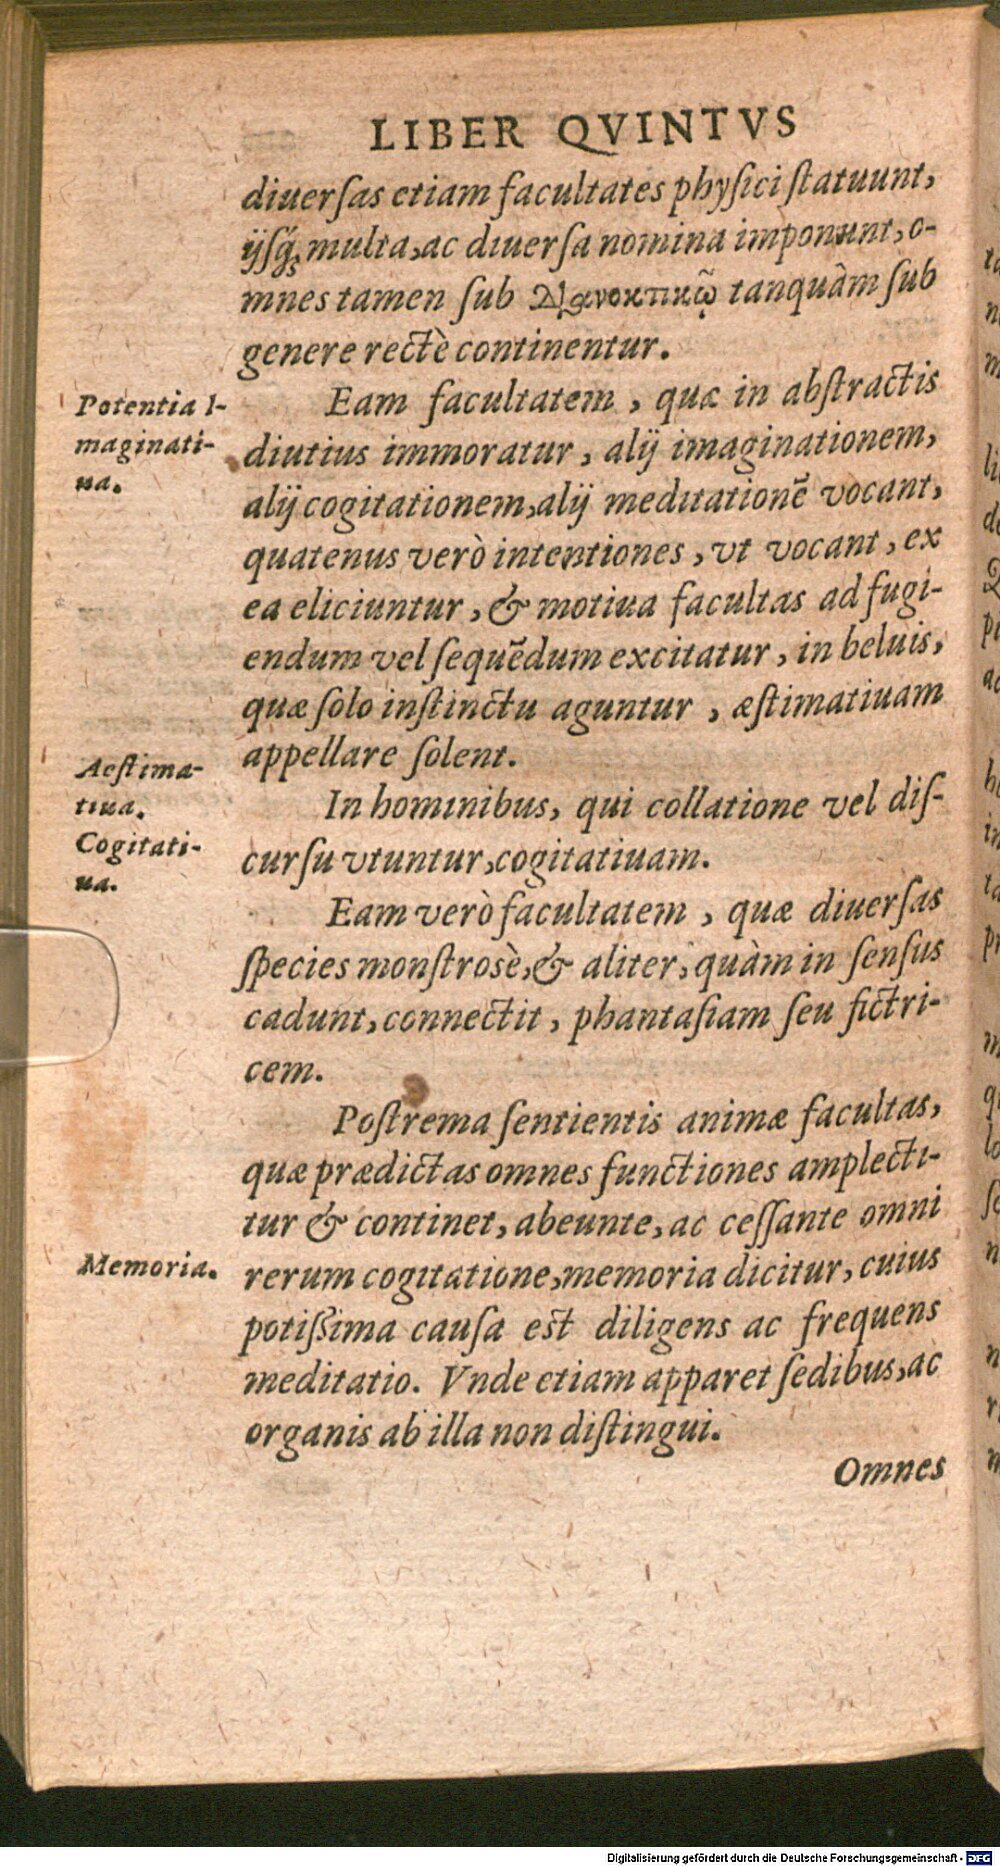 LIBER QVINTVS
diuerſas etiam facultates phyſici ſtatuunt,
ijſq́, multa, ac diuerſa nomina imponunt, o-
mnes tamen ſub διανοκτικῶ tanquàm ſub
genere rectè continentur.
Potentia I-
maginati-
ua.
Eam facultatem, quæ in abſtractis
diutius immoratur, alij imaginationem,
alij cogitationem, alij meditationē vocant,
quatenus verò intentiones, vt vocant, ex
ea eliciuntur, & motiua facultas ad fugi-
endum vel ſequēdum excitatur, in beluis,
quæ ſolo inſtinctu aguntur, æſtimatiuam
appellare ſolent.
Aeſtima-
tiua.
Cogitati-
ua.
In hominibus, qui collatione vel diſ-
curſu vtuntur, cogitatiuam.
Eam verò facultatem, quæ diuerſas
ſpecies monſtrosè, & aliter, quàm in ſenſus
cadunt, connectit, phantaſiam ſeu fictri-
cem.
Poſtrema ſentientis animæ facultas,
quæ prædictas omnes functiones amplecti-
tur & continet, abeunte, ac ceſſante omni
Memoria.
rerum cogitatione, memoria dicitur, cuius
potiſsima cauſa eſt diligens ac frequens
meditatio. Vnde etiam apparet ſedibus, ac
organis ab illa non diſtingui.
Omnes
Digitalisierung gefördert durch die Deutsche Forschungsgemeinschaft - DFG